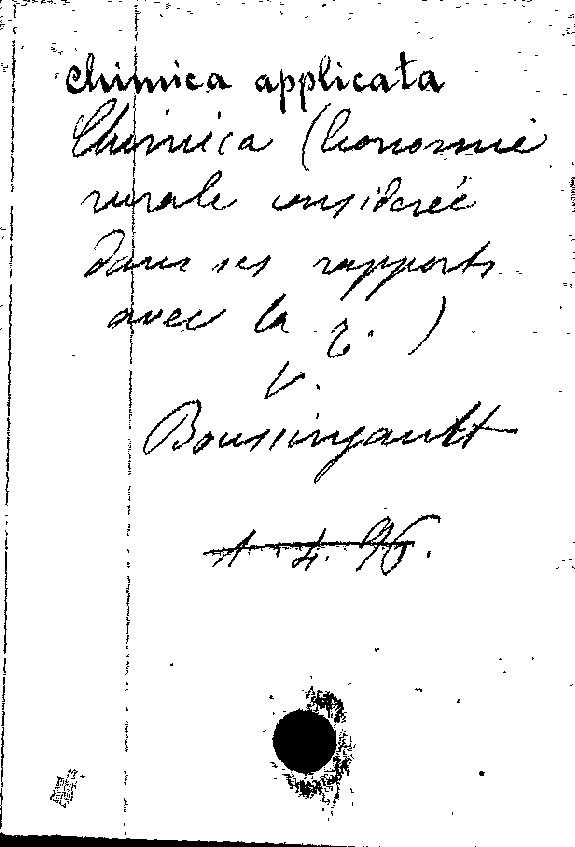 Chimica applicata
Chimica (Economie
rurale considereé
dans ses rapports
avec la c. )
V.
Boussingault
1. 4. 96.